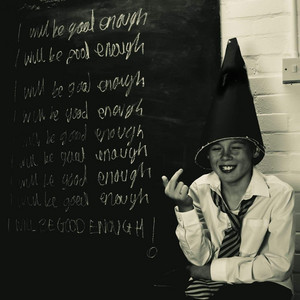 I will be good enough
I will be good enough
I will be good enough
I will be good enough
will be good enough
I will be good enough
I will be good enough
I will be good enough
I WILL BE GOOD ENOUGH!